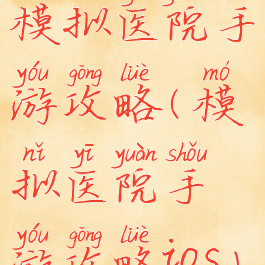 模拟医院手
yóu gōng lüè mó
游攻略(模
nǐ yī yuàn shǒu
拟医院手
yóu gōng lüè
游攻略ios)